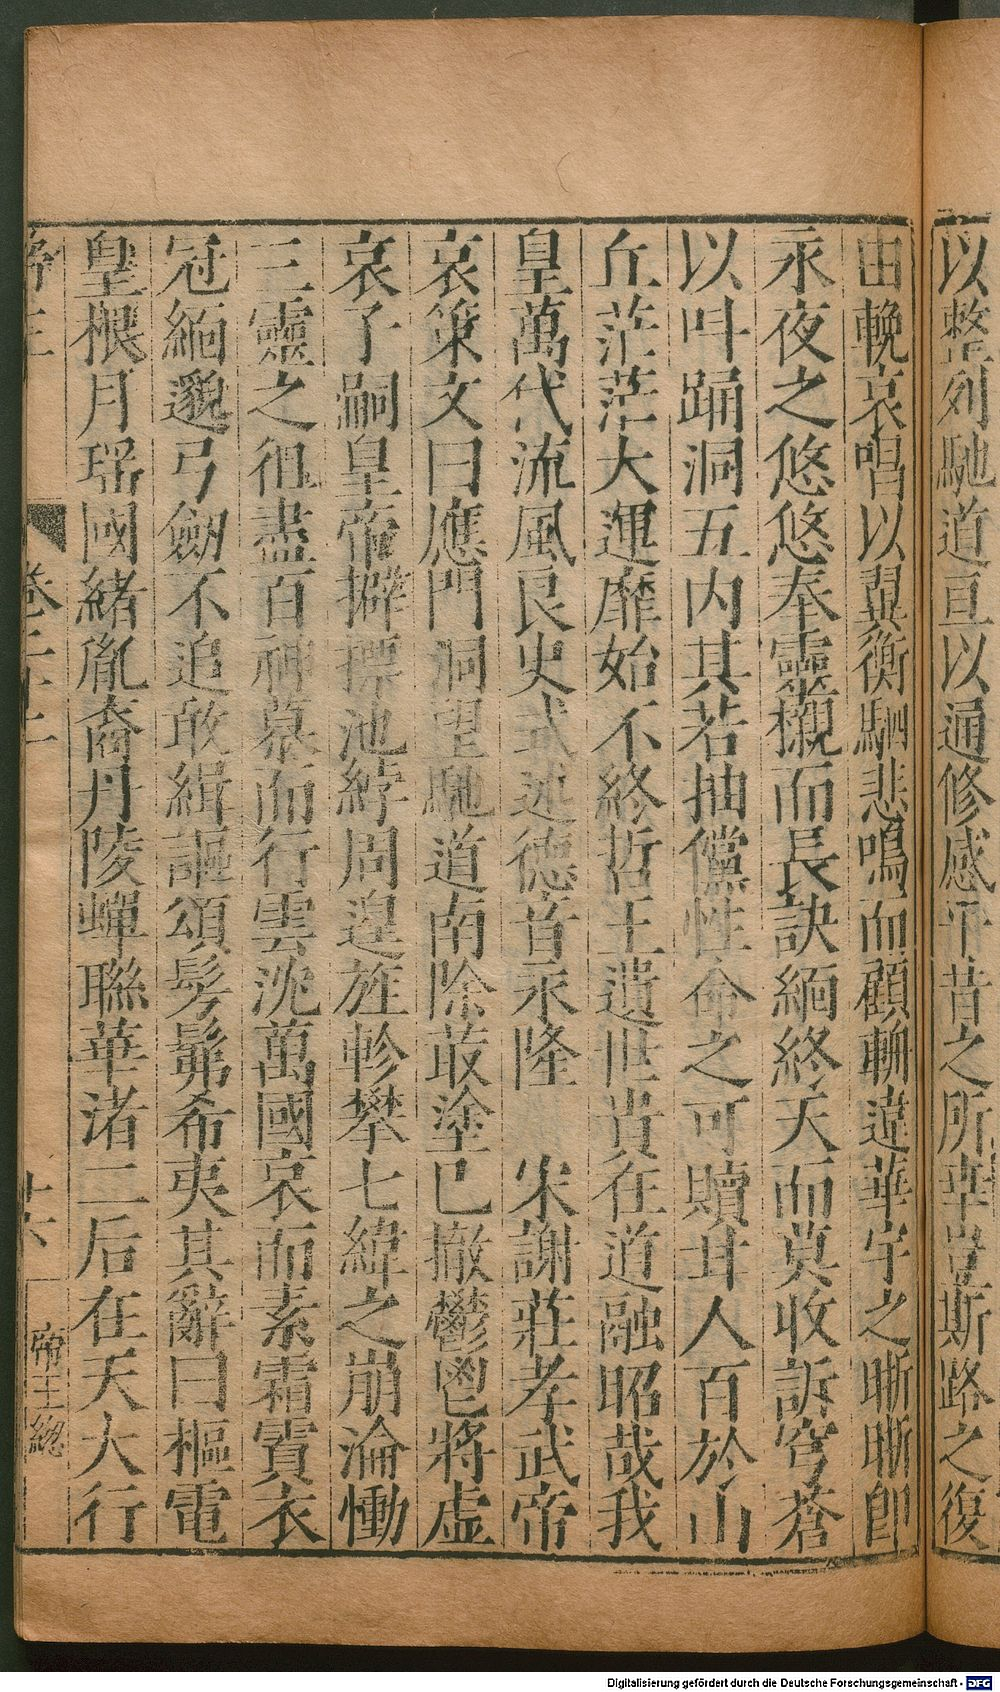 以整列馳道亘以通修感平昔之所幸豈斯路之復
由輓哀唱以翼衡駟悲鳴而顧輈違華宇之晣晣即
永夜之悠悠奉靈櫬而長訣緬終天而莫收訴穹蒼
以叫踊洞五内其若抽儻性命之可贖甘人百於山
丘茫茫大運靡始不終哲王遺世貴在道融昭哉我
皇萬代流風良史式述德音永隆　宋謝莊孝武帝
哀策文曰應門洞望馳道南除菆塗已撤鬱鬯將虛
哀子嗣皇帝擗摽池綍周遑旌軫攀七緯之崩淪慟
三靈之徂盡百神慕而行雲泣萬國哀而素霜賓衣
冠緬邈弓劒不追敢緝謳頌髣髴希夷其辭曰樞電
皇根月瑤國緒胤裔丹陵蟬聯華渚二后在天大行
卷十 十六 帝王總
Digitalisierung gefördert durch die Deutsche Forschungsgemeinschaft - DFG